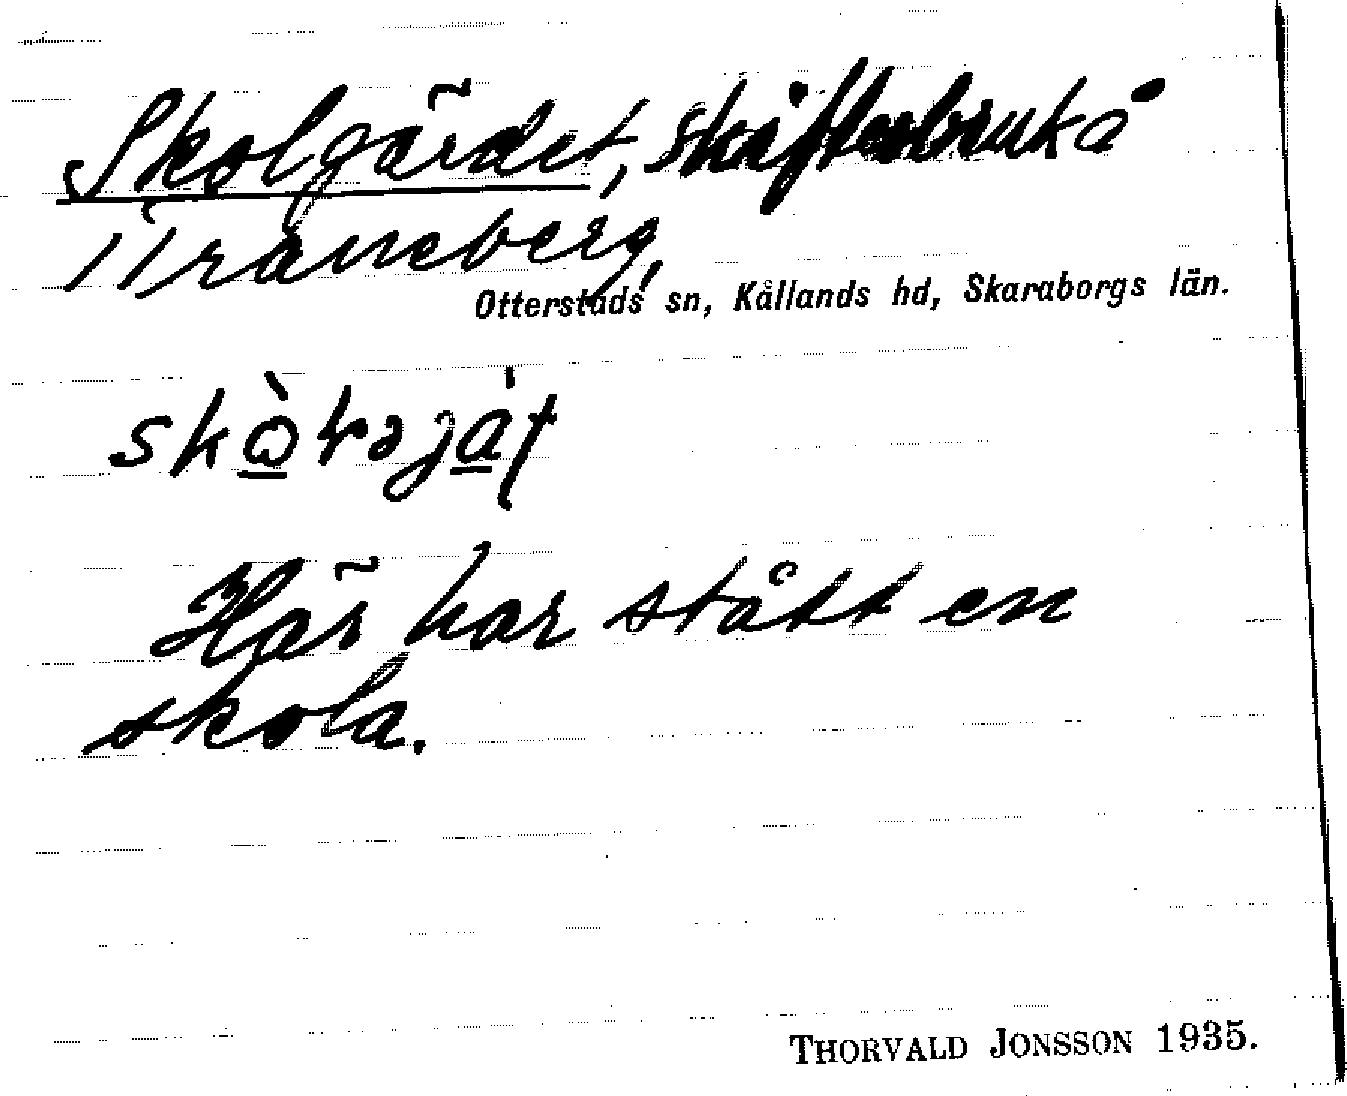 Skolgärdet, skifteshruk å
Traneberg,
Otterstads sn, Kållands hd, Skaraborgs län.
Här har stått en
skola.
THORVALD JONSSON 1935.